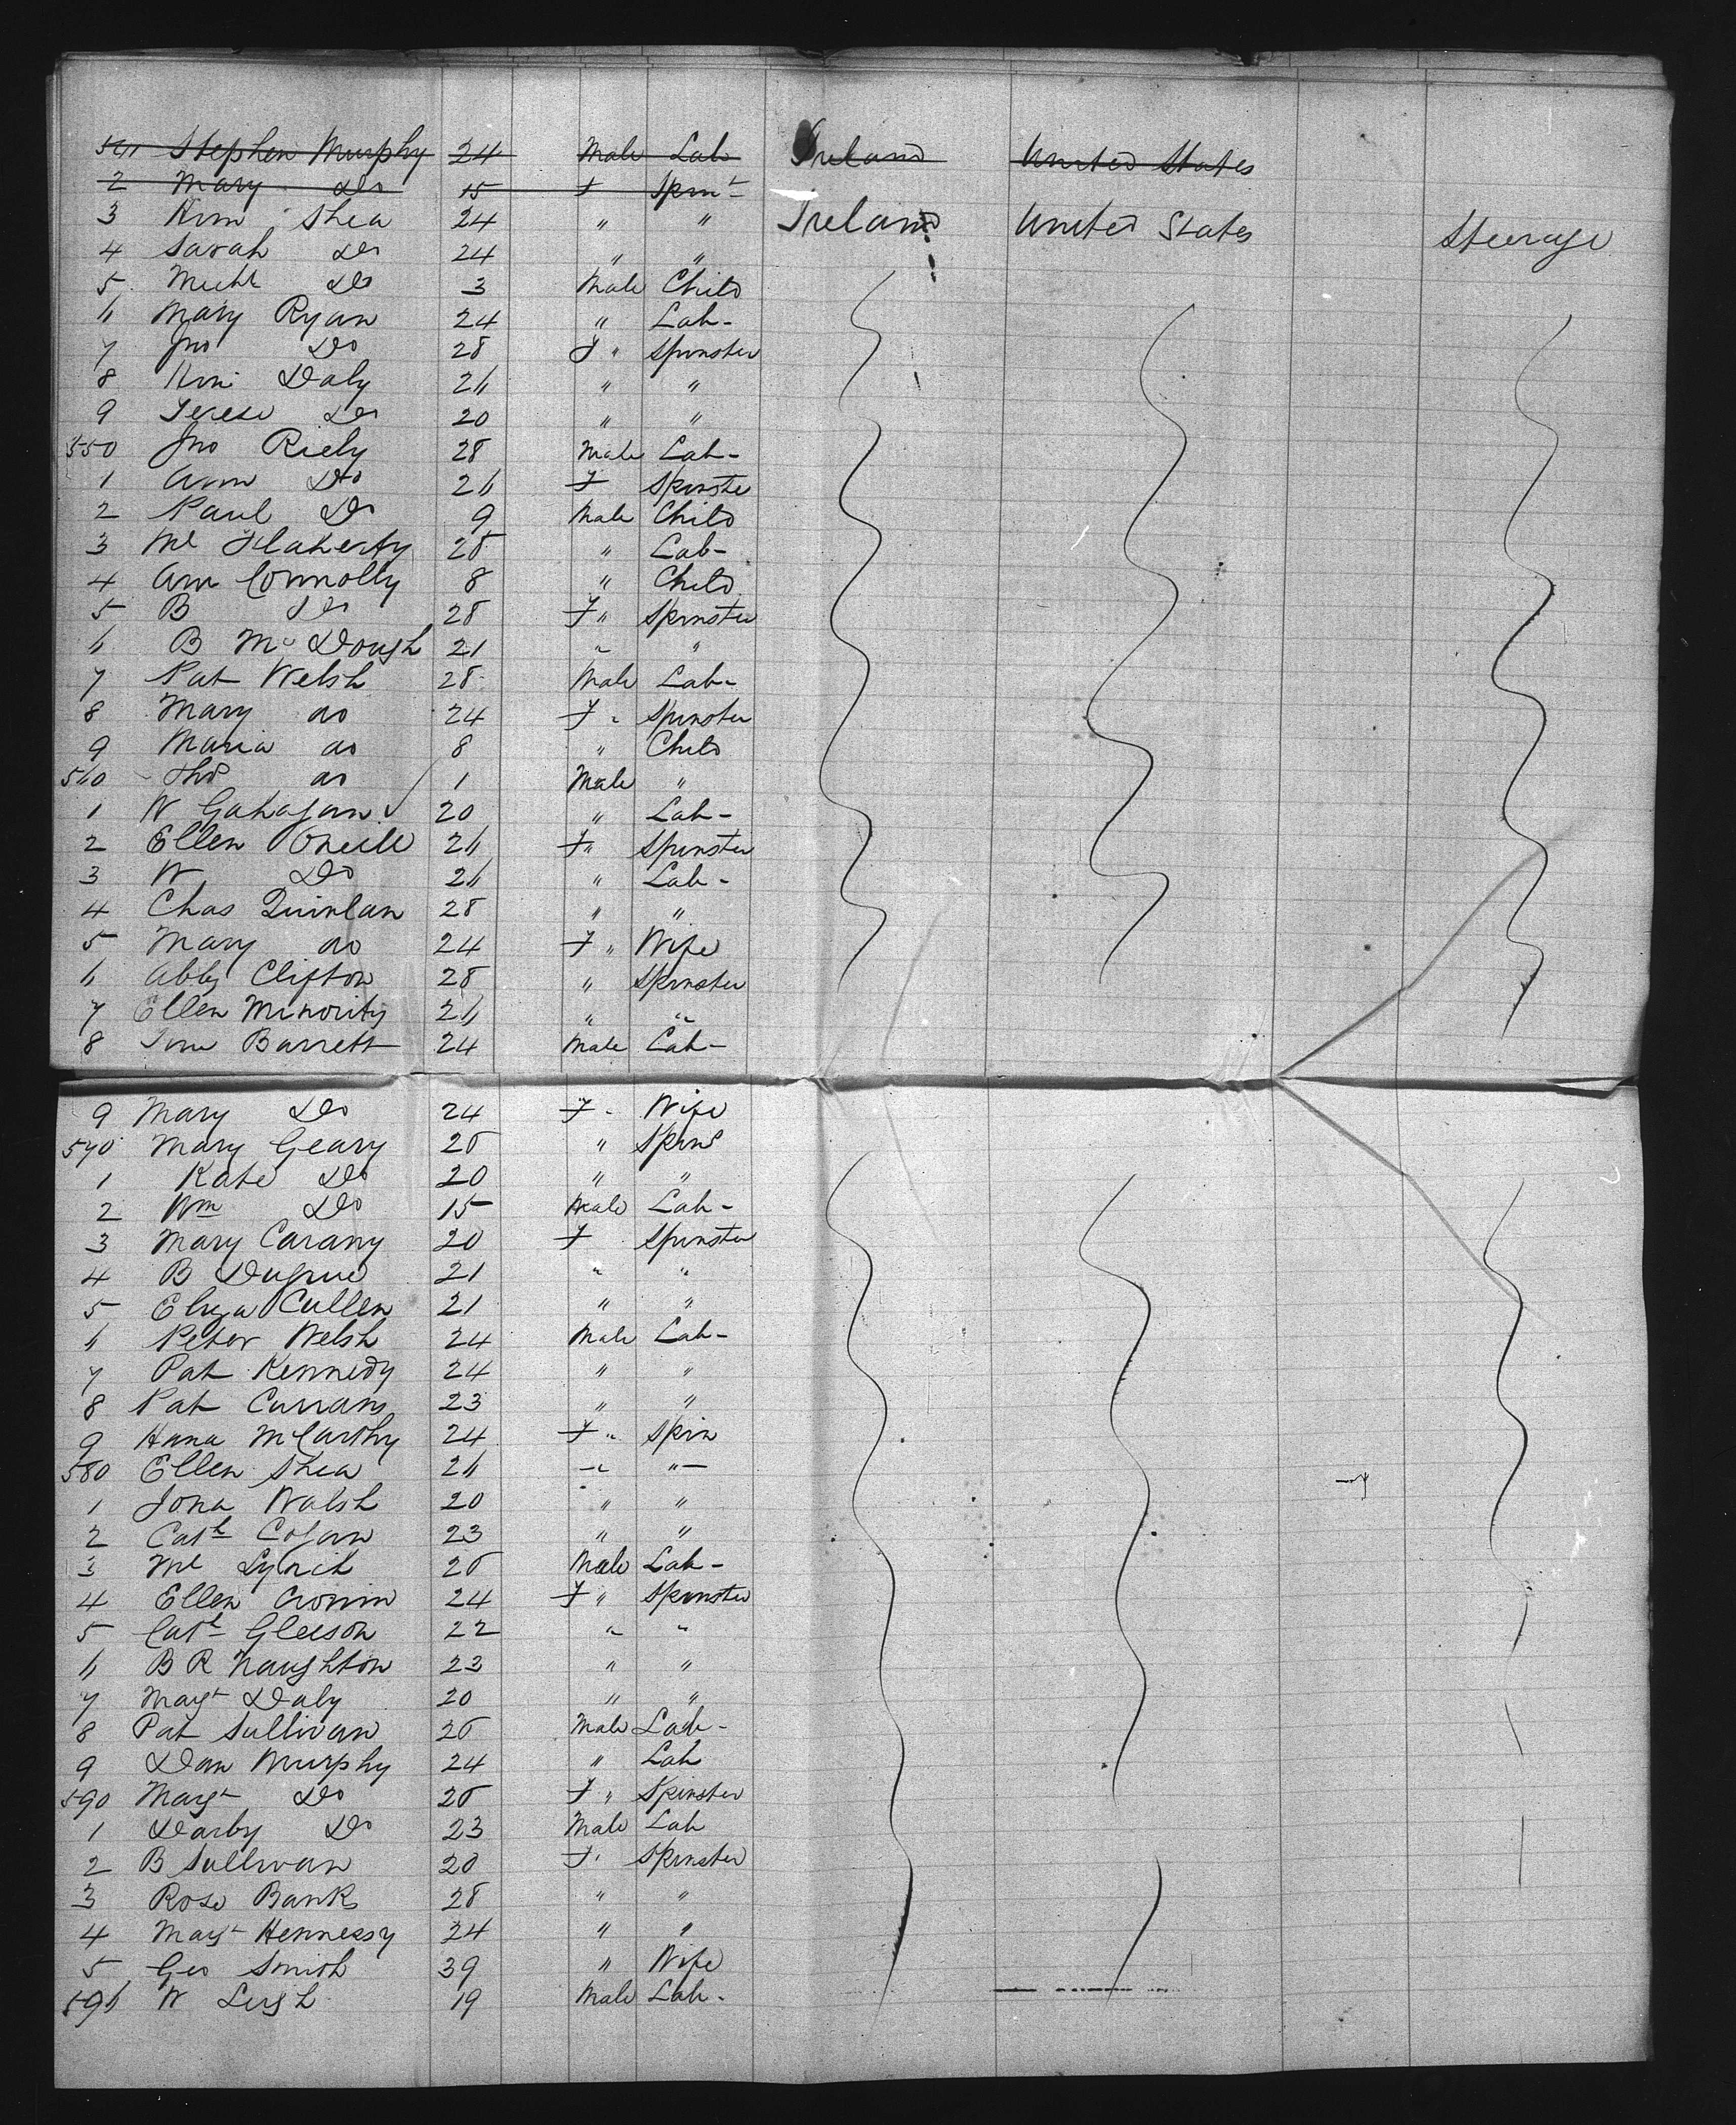 541 Stephen Murphy 24 Male Lab Ireland United States
2 Mary Do 15 F Spinr
3 Shea 24 " " Ireland United States Steerage
4 Sarah Do 24 " "
5 Michl Do 3 Male Child
6 Mary Ryan 24 " Lab-
7 Jno Do 28 F " Spinster
8 Daly 26 " "
9 Do 20 " "
550 Jno Riely 28 Male Lab-
1 Ann Do 26 F Spinster
2 Paul Do 9 Male Child
3 Ml Flaherty 28 " Lab-
4 Ann Connolly 8 " Child
5 B Do 28 F " Spinster
6 B Mc Dough 21 " "
7 Pat Welsh 28 Male Lab-
8 Mary do 24 F " Spinster
9 Maria do 8 " Child
560 Thos do 1 Male "
1 W Gahagan 20 " Lab-
2 Ellen Oneill 26 F " Spinster
3 W Do 26 " Lab-
4 Chas Quinlan 28 " "
5 Mary do 24 F " Wife
6 Abby Clifton 28 " Spinster
7 Ellen Minority 26 " "
8 Barrett 24 Male Lab-
9 Mary Do 24 F " Wife
570 Mary Geary 25 " Spins
1 Kate Do 20 " "
2 Wm Do 15 Male Lab-
3 Mary Carany 20 F Spinster
4 B 21 " "
5 Eliza Cullen 21 " "
6 Peter Welsh 24 Male Lab-
7 Pat Kennedy 24 " "
8 Pat Currans 23 " "
9 Hana McCarthy 24 F " Spin
580 Ellen Shea 26 " "
1 Walsh 20 " "
2 Cath Cogan 23 " "
3 Ml Lynch 25 Male Lab-
4 Ellen Cronin 24 F " Spinster
5 Cath Gleeson 22 " "
6 B R Naughton 23 " "
7 Magt Daly 20 " "
8 Pat Sullivan 25 Male Lab-
9 Dan Murphy 24 " Lab
590 Magt Do 25 F " Spinster
1 Darby Do 23 Male Lab
2 B Sullivan 20 F " Spinster
3 Rose Banks 28 " "
4 Magt Hennessy 24 " "
5 Geo Smith 39 " Wife
596 W Leigh 19 Male Lab-